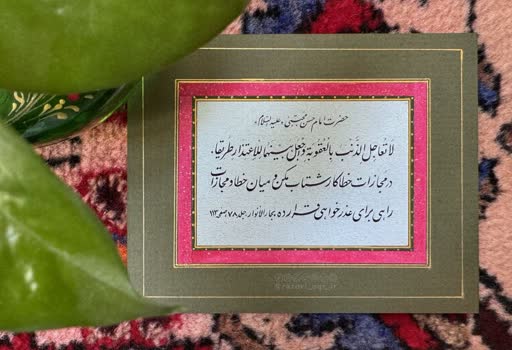 حضرت امام حسن مجتبی «علیه‌السلام»
لاتُعاجِلِ الذَّنبَ بِالعُقوبَةِ وَاجعَل بَینَهُما لِلاِعتِذارِ طَریقاً.
در مجازات خطاکار شتاب مکن و میان خطا و مجازات
راهی برای عذرخواهی قرار ده. بحارالانوار، جلد ۷۸، صفحه ۱۱۳